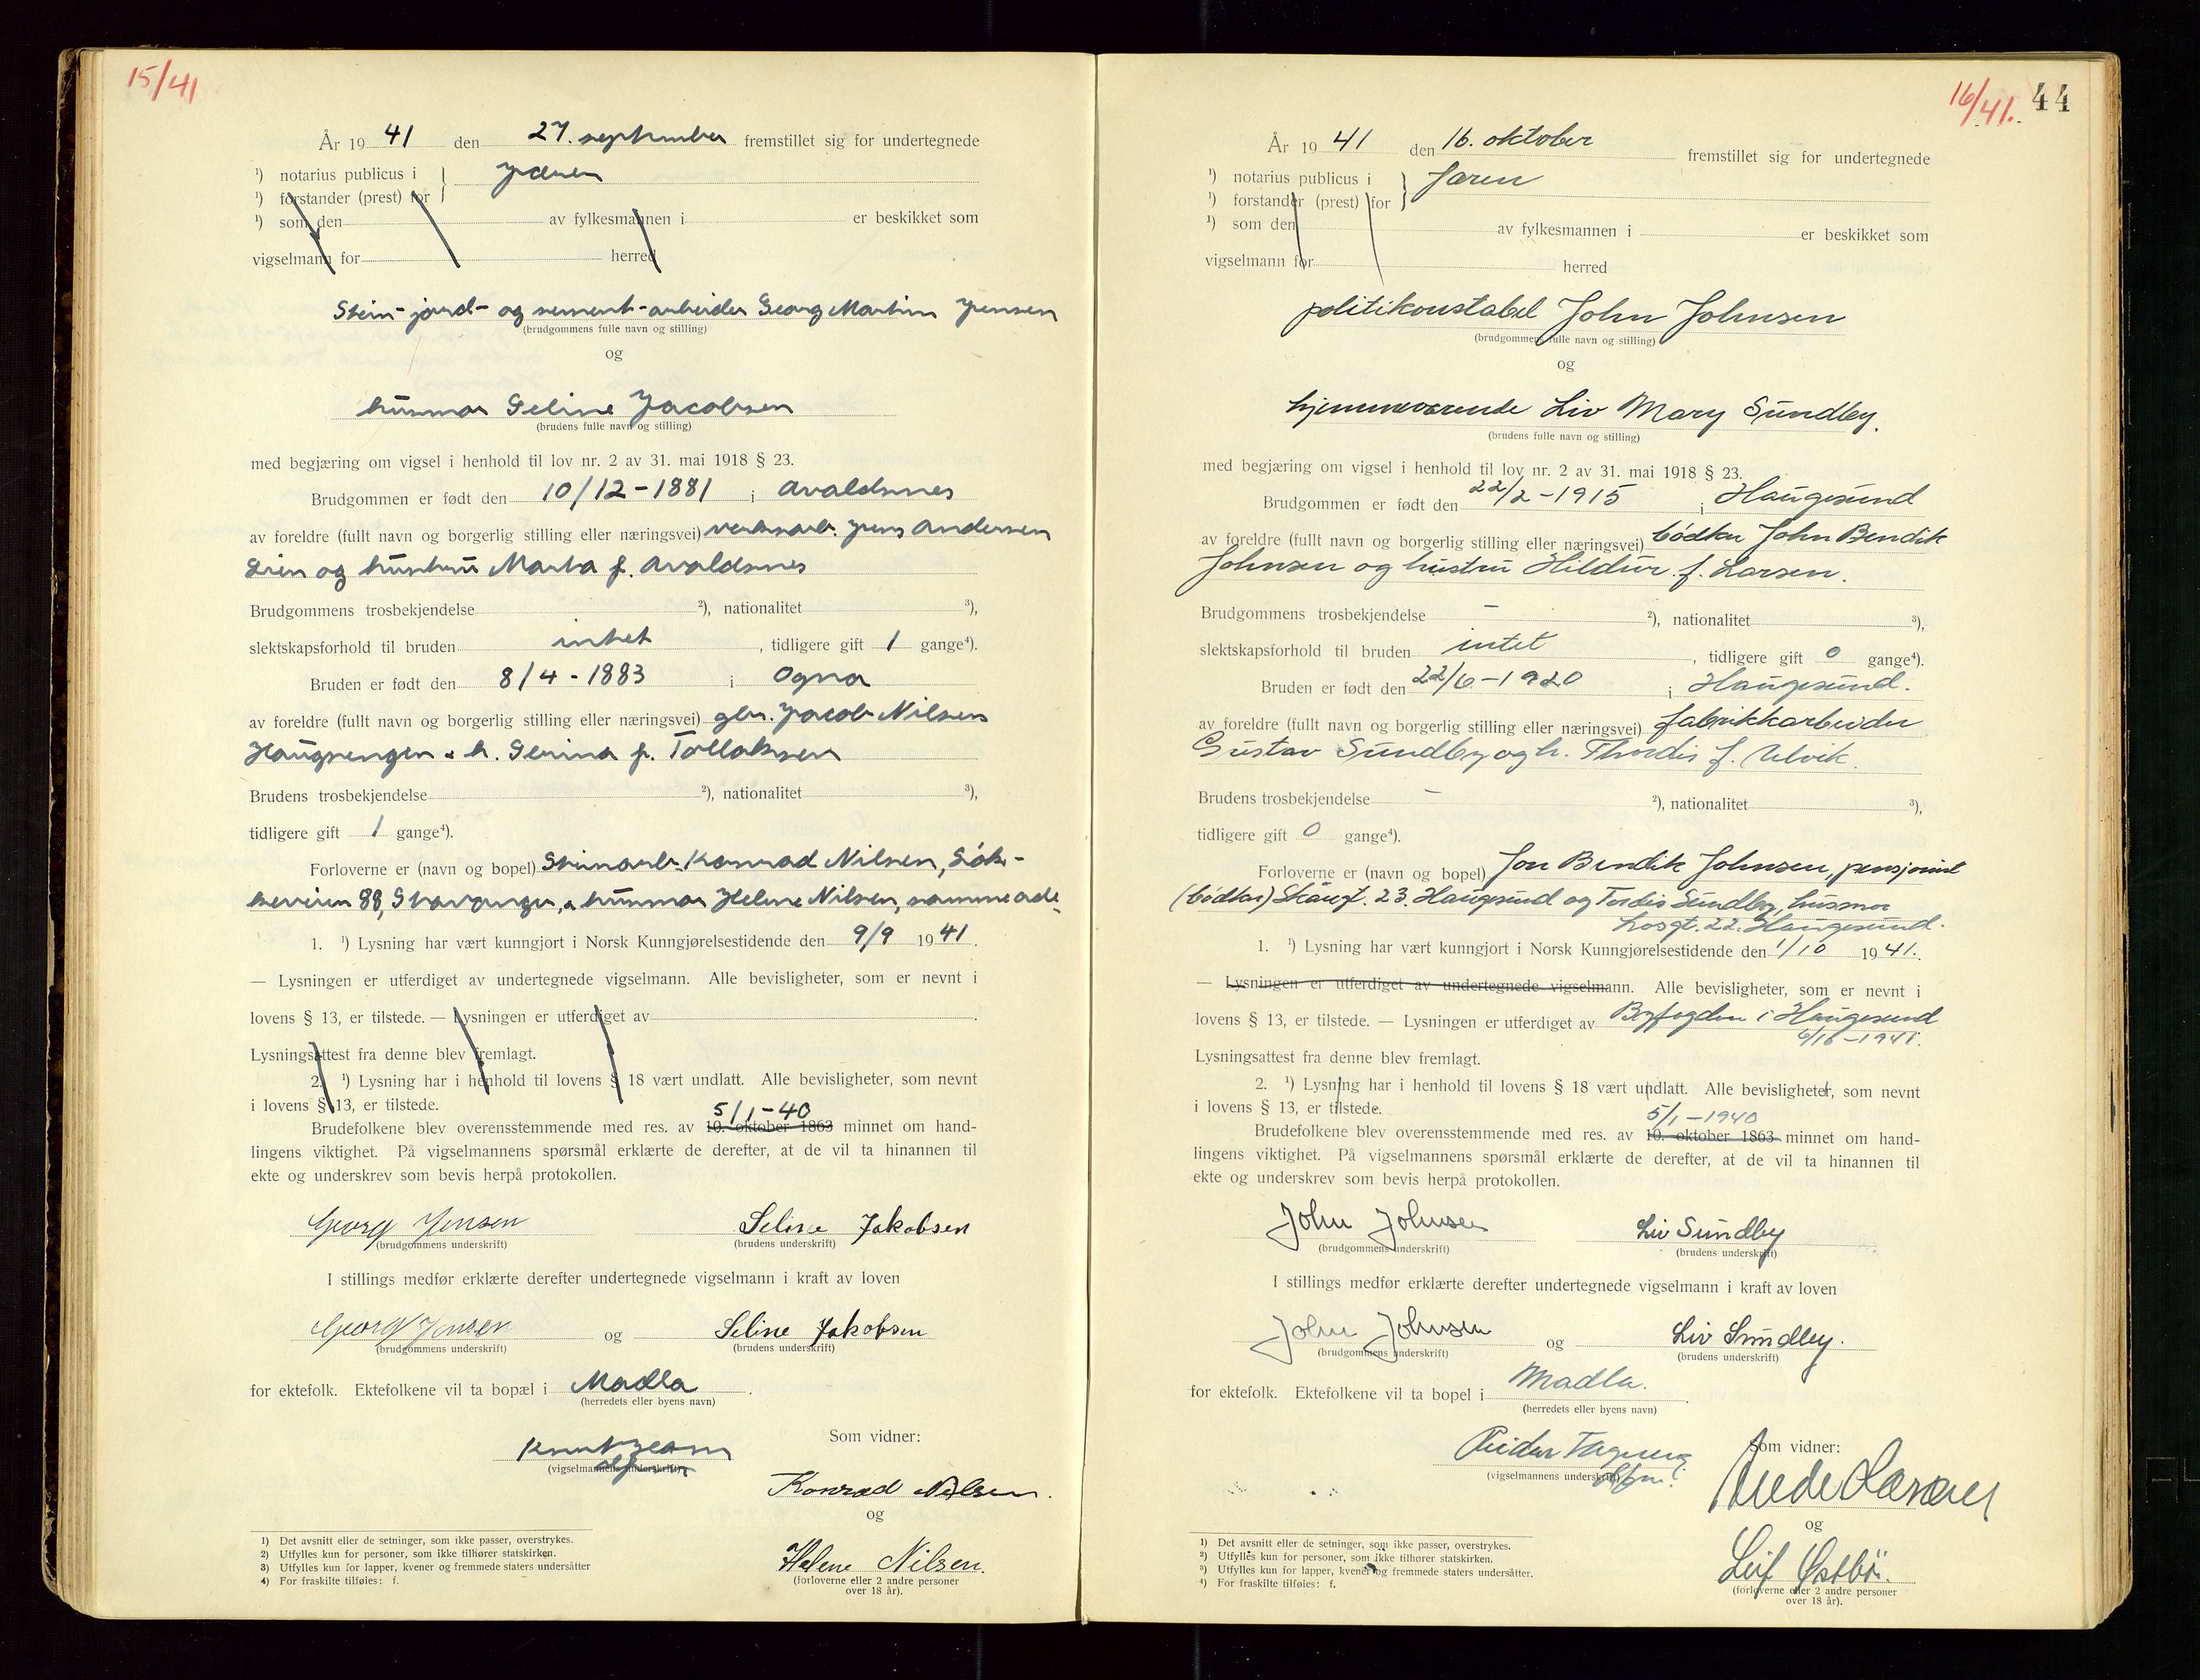 15/41
År 1941 den 27. september fremstillet sig for undertegnede
¹) notarius publicus i } Jæren
¹) forstander (prest) for
¹) som den av fylkesmannen i er beskikket som
vigselmann for herred
Stein- jord- og sement-arbeider Georg Martin Jensen
(brudgommens fulle navn og stilling)
og
husmor Seline Jacobsen
(brudens fulle navn og stilling)
med begjæring om vigsel i henhold til lov nr. 2 av 31. mai 1918 § 23.
Brudgommen er født den 10/12-1881 i Avaldsnes
av foreldre (fullt navn og borgerlig stilling eller næringsvei) verksarb. Jens Andersen
Lien og hustru Marta f. Avaldsnes
Brudgommens trosbekjendelse ²), nationalitet ³),
slektskapsforhold til bruden intet, tidligere gift 1 gange⁴).
Bruden er født den 8/4-1883 i Ogna
av foreldre (fullt navn og borgerlig stilling eller næringsvei) gbr. Jacob Nilsen
Haugsengen & h. Serina f. Tollaksen
Brudens trosbekjendelse ²), nationalitet ³),
tidligere gift 1 gange⁴).
Forloverne er (navn og bopel) Steinarb. Konrad Nilsen,
88, Stavanger, & husmor Helene Nilsen, samme adr.
1. ¹) Lysning har vært kunngjort i Norsk Kunngjørelsestidende den 9/9 1941.
— Lysningen er utferdiget av undertegnede vigselmann. Alle bevisligheter, som er nevnt i
lovens § 13, er tilstede. — Lysningen er utferdiget av .
Lysningsattest fra denne blev fremlagt.
2. ¹) Lysning har i henhold til lovens § 18 vært undlatt. Alle bevisligheter, som nevnt
i lovens § 13, er tilstede.
5/1-40
Brudefolkene blev overensstemmende med res. av 10. oktober 1863 minnet om hand-
lingens viktighet. På vigselmannens spørsmål erklærte de derefter, at de vil ta hinannen til
ekte og underskrev som bevis herpå protokollen.
Georg Jensen Seline Jakobsen
(brudgommens underskrift) (brudens underskrift)
I stillings medfør erklærte derefter undertegnede vigselmann i kraft av loven
Georg Jensen og Seline Jakobsen
(brudgommens underskrift) (brudens underskrift)
for ektefolk. Ektefolkene vil ta bopæl i Madla.
(herredets eller byens navn)
Som vidner:
Knut
(vigselmannens underskrift)
Konrad Nilsen.
og
Helene Nilsen.
(forloverne eller 2 andre personer
over 18 år).
1) Det avsnitt eller de setninger, som ikke passer, overstrykes.
2) Utfylles kun for personer, som ikke tilhører statskirken.
3) Utfylles kun for lapper, kvener og fremmede staters undersåtter
4) For fraskilte tilføies: f.
16/41. 44
År 1941 den 16. oktober fremstillet sig for undertegnede
¹) notarius publicus i } Jæren
¹) forstander (prest) for
¹) som den av fylkesmannen i er beskikket som
vigselmann for herred
politikonstabel John Johnsen
(brudgommens fulle navn og stilling)
og
hjemmeværende Liv Mary Sundby.
(brudens fulle navn og stilling)
med begjæring om vigsel i henhold til lov nr. 2 av 31. mai 1918 § 23.
Brudgommen er født den 22/2-1915 i Haugesund
av foreldre (fullt navn og borgerlig stilling eller næringsvei) bødker John Bendik
Johnsen og hustru Hildur f. Larsen.
Brudgommens trosbekjendelse – ²), nationalitet ³),
slektskapsforhold til bruden intet, tidligere gift 0 gange⁴).
Bruden er født den 22/6-1920 i Haugesund.
av foreldre (fullt navn og borgerlig stilling eller næringsvei) fabrikkarbeider
Gustav Sundby og h. Thordis f. Ulvik.
Brudens trosbekjendelse – ²), nationalitet ³),
tidligere gift 0 gange⁴).
Forloverne er (navn og bopel) Jon Bendik Johnsen, pensjonist
(bødker) Skåregt. 23. Haugesund og Tordis Sundby, husmor
22. Haugesund.
1. ¹) Lysning har vært kunngjort i Norsk Kunngjørelsestidende den 1/10 1941.
— Lysningen er utferdiget av undertegnede vigselmann. Alle bevisligheter, som er nevnt i
lovens § 13, er tilstede. — Lysningen er utferdiget av Byfogden i Haugesund
6/10-1941.
Lysningsattest fra denne blev fremlagt.
2. ¹) Lysning har i henhold til lovens § 18 vært undlatt. Alle bevisligheter, som nevnt
i lovens § 13, er tilstede.
5/1-1940
Brudefolkene blev overensstemmende med res. av 10. oktober 1863 minnet om hand-
lingens viktighet. På vigselmannens spørsmål erklærte de derefter, at de vil ta hinannen til
ekte og underskrev som bevis herpå protokollen.
John Johnsen Liv Sundby
(brudgommens underskrift) (brudens underskrift)
I stillings medfør erklærte derefter undertegnede vigselmann i kraft av loven
John Johnsen og Liv Sundby.
(brudgommens underskrift) (brudens underskrift)
for ektefolk. Ektefolkene vil ta bopel i Madla.
(herredets eller byens navn)
Som vidner:
Reidar
(vigselmannens underskrift)
og
Leif Østbö.
(forloverne eller 2 andre personer
over 18 år).
1) Det avsnitt eller de setninger, som ikke passer, overstrykes.
2) Utfylles kun for personer, som ikke tilhører statskirken.
3) Utfylles kun for lapper, kvener og fremmede staters undersåtter.
4) For fraskilte tilføies: f.